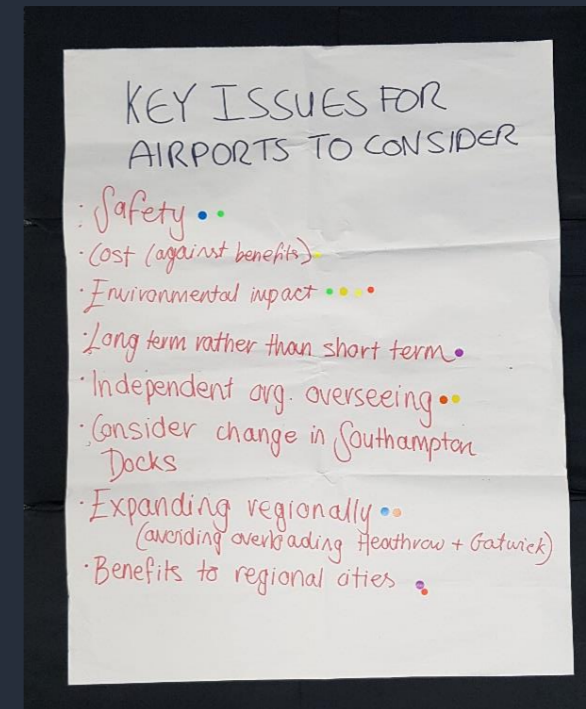 KEY ISSUES FOR
AIRPORTS TO CONSIDER
· Safety
· Cost (against benefits)
· Environmental impact
· Long term rather than short term
· Independent org. overseeing
· Consider change in Southampton
Docks
· Expanding regionally
(avoiding overloading Heathrow + Gatwick)
· Benefits to regional cities